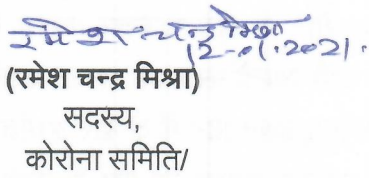 रमेश चन्द्र मिश्रा
12-01-2021.
(रमेश चन्द्र मिश्रा)
सदस्य,
कोरोना समिति/